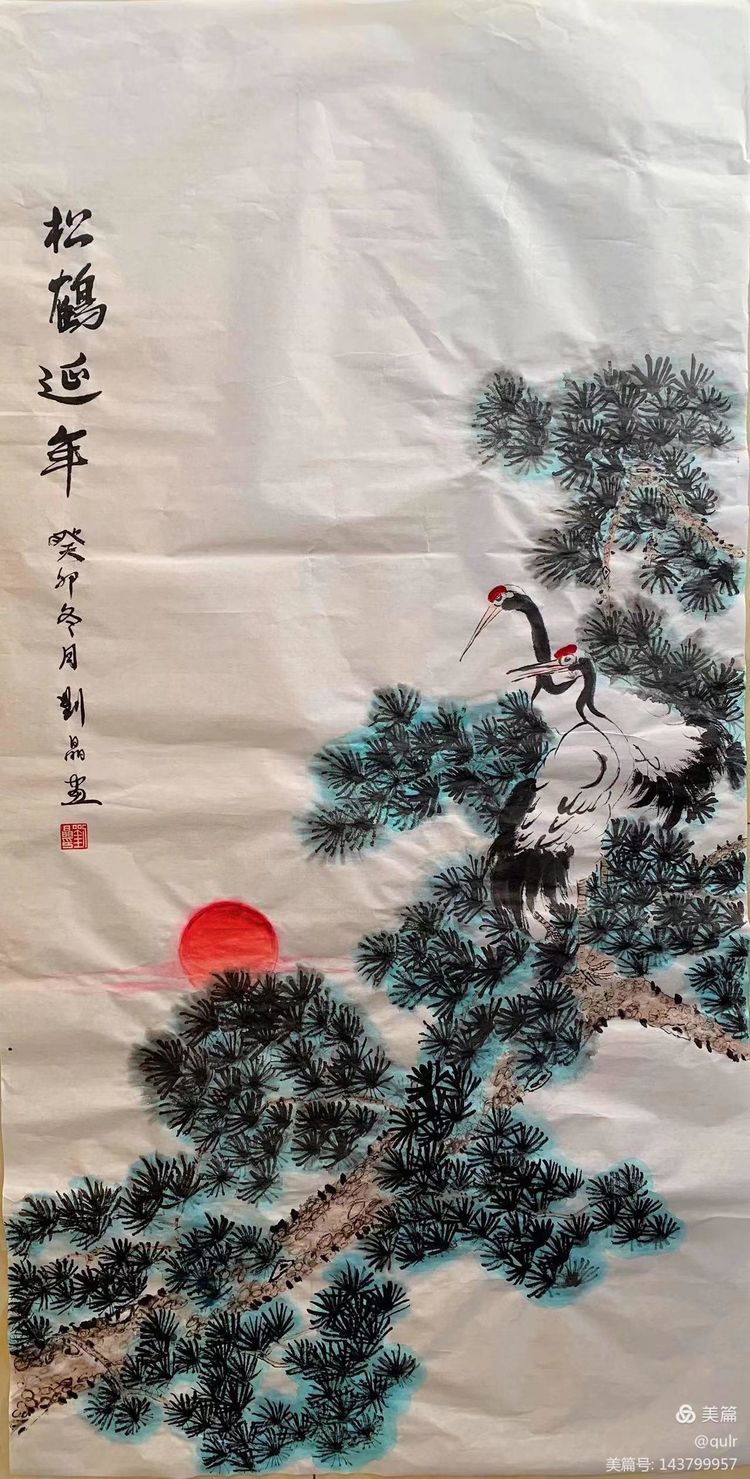 松鶴延年
癸卯冬月劉晶畫
劉晶
美篇
@qulr
美篇号: 143799957